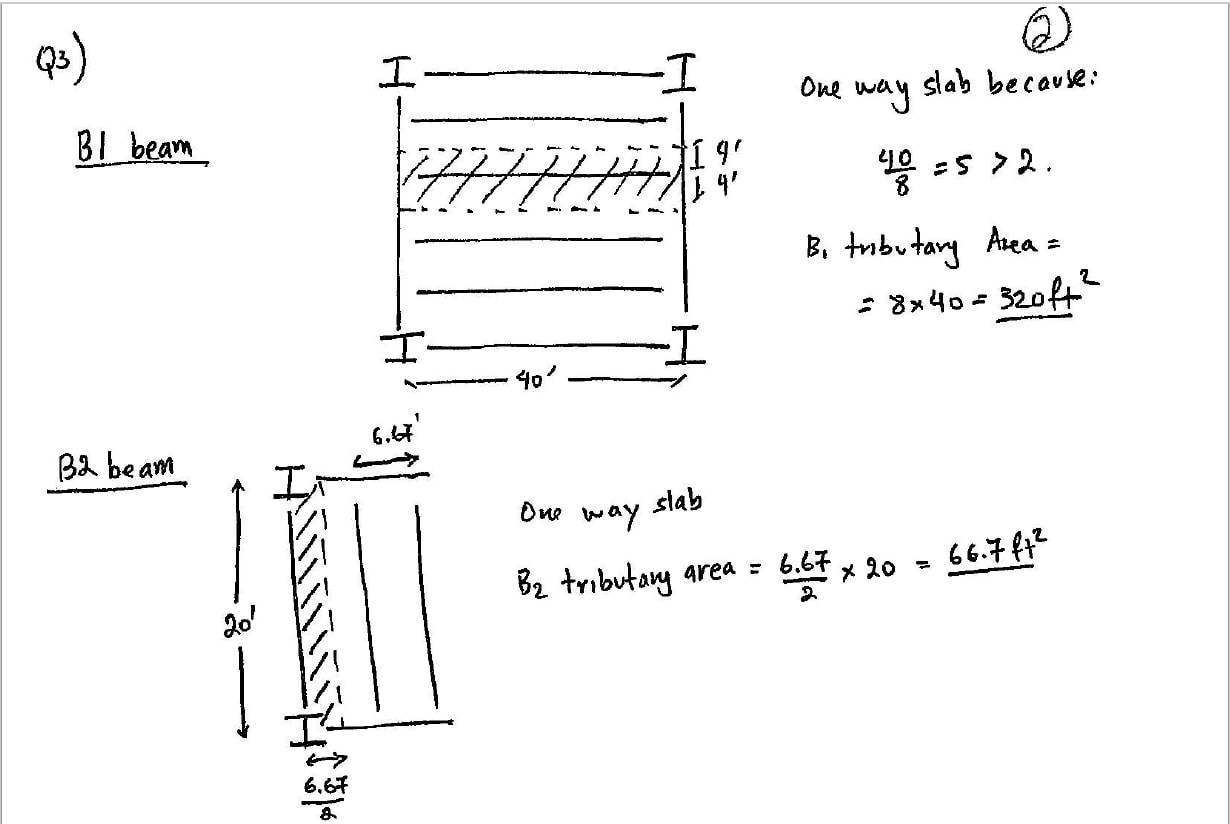 ②
Q3)
B1 beam
One way slab because:
4'
4'
40/8 = 5 > 2.
B₁ tributary Area =
= 8 x 40 = 320 ft²
40'
B2 beam
6.67'
20'
One way slab
B₂ tributary area = 6.67/2 x 20 = 66.7 ft²
6.67/2